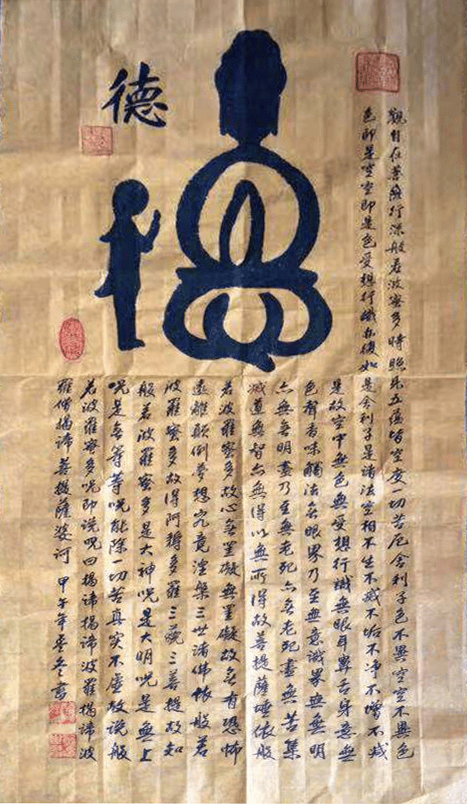 觀自在菩薩行深般若波蜜多時照見五蘊皆空度一切苦厄舍利子色不異空空不異色
色即是空空即是色受想行識亦復如是舍利子是諸法空相不生不滅不垢不淨不增不減
是故空中無色無受想行識無眼耳鼻舌身意無
色聲香味觸法無眼界乃至無意識界無無明
亦無無明盡乃至無老死亦無老死盡無苦集
滅道無智亦無得以無所得故菩提薩埵依般
若波羅蜜多故心無罣礙無罣礙故無有恐怖
遠離顛倒夢想究竟涅槃三世諸佛依般若
波羅蜜多故得阿耨多羅三藐三菩提故知
般若波羅蜜多是大神咒是大明咒是無上
咒是無等等咒能除一切苦真實不虛故說般
若波羅蜜多咒即說咒曰揭諦揭諦波羅揭諦波
羅僧揭諦菩提薩婆訶 甲午年冬書
德